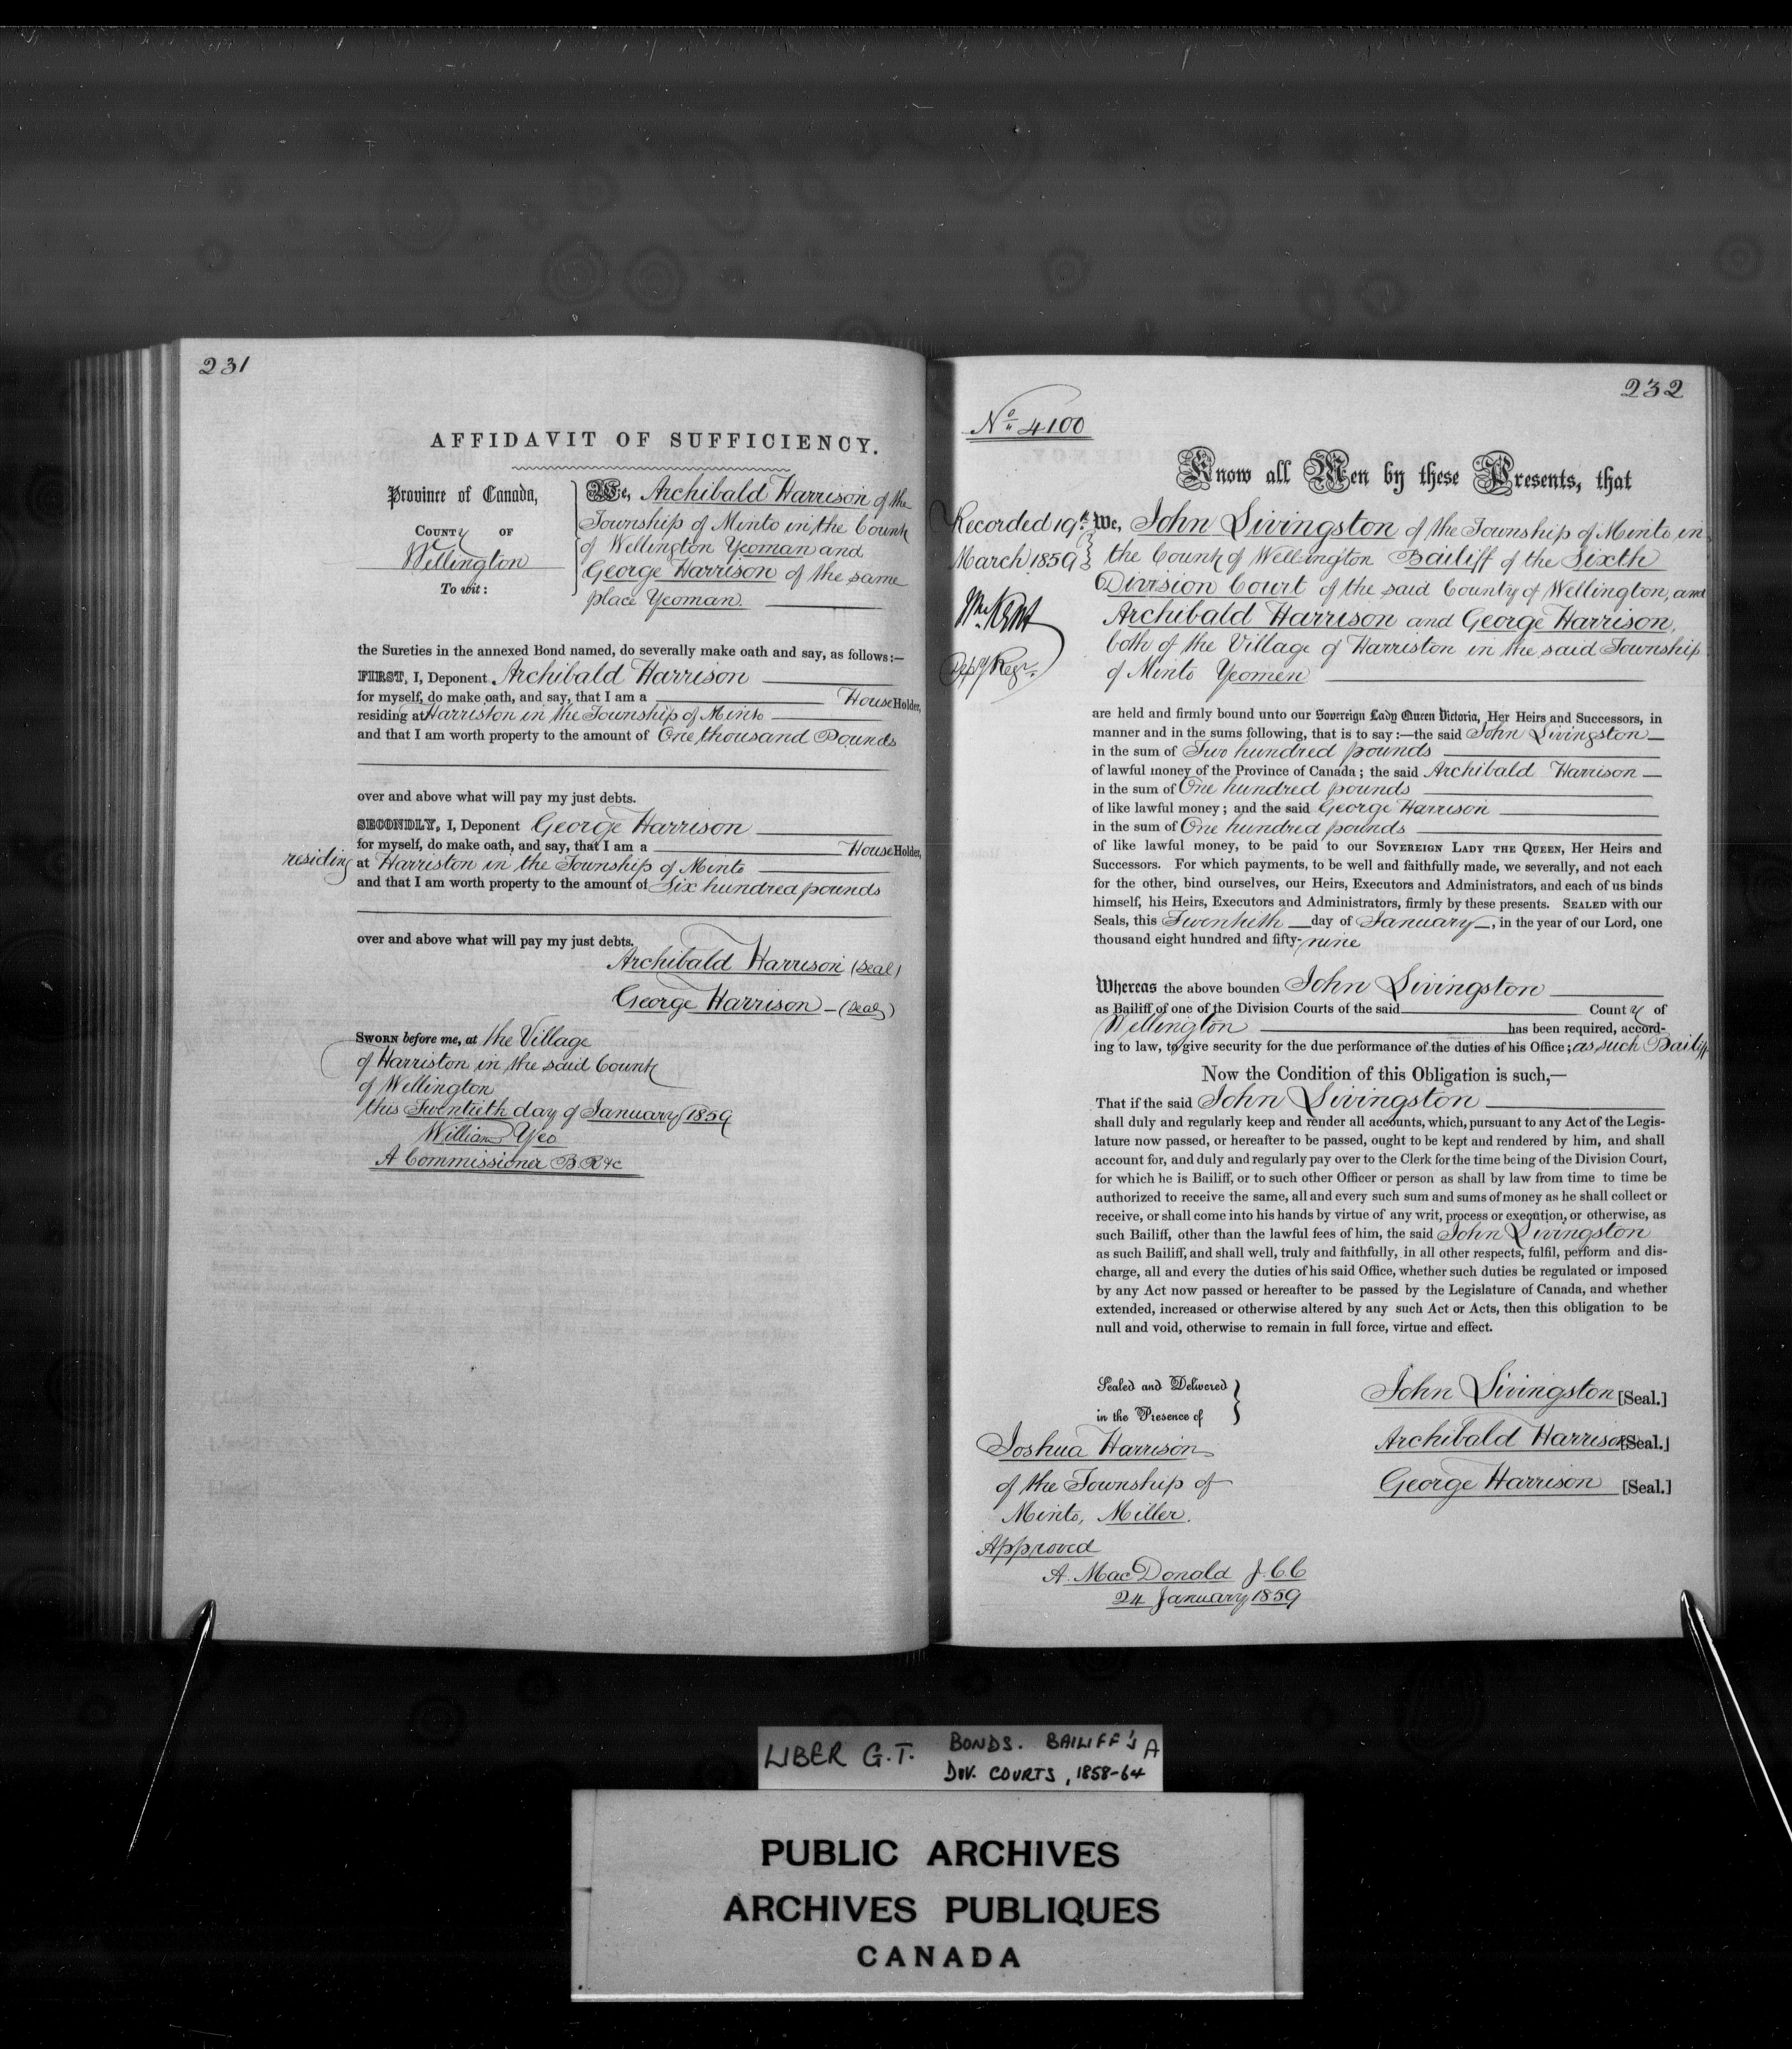 231
AFFIDAVIT OF SUFFICIENCY.
Province of Canada,
County of
Wellington
To wit:
We, Archibald Harrison of the
Township of Minto in the County
of Wellington Yeoman and
George Harrison of the same
place Yeoman.
the Sureties in the annexed Bond named, do severally make oath and say, as follows:—
FIRST, I, Deponent Archibald Harrison
for myself, do make oath, and say, that I am a House Holder,
residing at Harriston in the Township of Minto
and that I am worth property to the amount of One thousand Pounds
over and above what will pay my just debts.
SECONDLY, I, Deponent George Harrison
for myself, do make oath, and say, that I am a House Holder,
residing at Harriston in the Township of Minto
and that I am worth property to the amount of Six hundred pounds
over and above what will pay my just debts.
Archibald Harrison (Seal)
George Harrison — (Seal)
Sworn before me, at the Village
of Harriston in the said County
of Wellington
this Twentieth day of January 1859
William Yeo
A Commissioner B.R &c
232
No. 4100
Know all Men by these Presents, that
Recorded 19th
March 1859
Wm Kent
Depy Regr.
We, John Livingston of the Township of Minto in
the County of Wellington Bailiff of the Sixth
Division Court of the said County of Wellington, and
Archibald Harrison and George Harrison,
both of the Village of Harriston in the said Township
of Minto Yeomen
are held and firmly bound unto our Sovereign Lady Queen Victoria, Her Heirs and Successors, in
manner and in the sums following, that is to say:—the said John Livingston —
in the sum of Two hundred pounds
of lawful money of the Province of Canada; the said Archibald Harrison —
in the sum of One hundred pounds
of like lawful money; and the said George Harrison
in the sum of One hundred pounds
of like lawful money, to be paid to our Sovereign Lady the Queen, Her Heirs and
Successors. For which payments, to be well and faithfully made, we severally, and not each
for the other, bind ourselves, our Heirs, Executors and Administrators, and each of us binds
himself, his Heirs, Executors and Administrators, firmly by these presents. Sealed with our
Seals, this Twentieth — day of January —, in the year of our Lord, one
thousand eight hundred and fifty-nine
Whereas the above bounden John Livingston
as Bailiff of one of the Division Courts of the said County of
Wellington has been required, accord-
ing to law, to give security for the due performance of the duties of his Office; as such Bailiff
Now the Condition of this Obligation is such,—
That if the said John Livingston
shall duly and regularly keep and render all accounts, which, pursuant to any Act of the Legis-
lature now passed, or hereafter to be passed, ought to be kept and rendered by him, and shall
account for, and duly and regularly pay over to the Clerk for the time being of the Division Court,
for which he is Bailiff, or to such other Officer or person as shall by law from time to time be
authorized to receive the same, all and every such sum and sums of money as he shall collect or
receive, or shall come into his hands by virtue of any writ, process or execution, or otherwise, as
such Bailiff, other than the lawful fees of him, the said John Livingston
as such Bailiff, and shall well, truly and faithfully, in all other respects, fulfil, perform and dis-
charge, all and every the duties of his said Office, whether such duties be regulated or imposed
by any Act now passed or hereafter to be passed by the Legislature of Canada, and whether
extended, increased or otherwise altered by any such Act or Acts, then this obligation to be
null and void, otherwise to remain in full force, virtue and effect.
Sealed and Delivered
in the Presence of
Joshua Harrison
of the Township of
Minto, Miller.
Approved
A. MacDonald J.C.C
24 January 1859
John Livingston [Seal.]
Archibald Harrison [Seal.]
George Harrison [Seal.]
LIBER G.T. BONDS. BAILIFF'S A
DIV. COURTS, 1858-64
PUBLIC ARCHIVES
ARCHIVES PUBLIQUES
CANADA